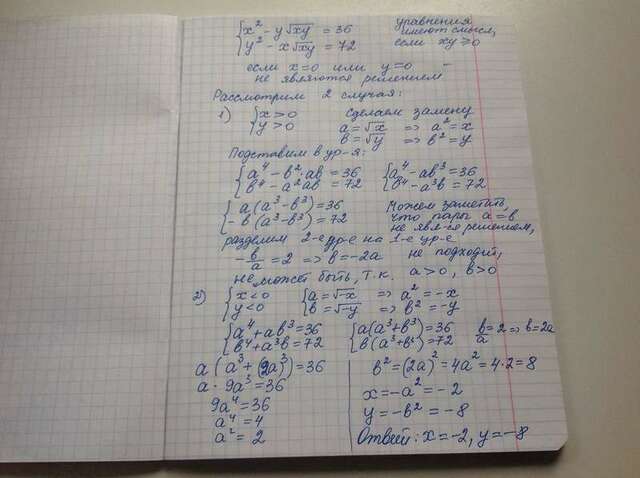 {x² - y√xy = 36
{y² - x√xy = 72
уравнения имеют смысл, если xy ≥ 0
если x=0 или y=0 –
не являются решением
Рассмотрим 2 случая:
1) {x>0
{y>0
сделаем замену
a=√x => a²=x
b=√y => b²=y
Подставим в ур-я:
{a⁴ - b²·ab = 36
{b⁴ - a²ab = 72
{a⁴ - ab³ = 36
{b⁴ - a³b = 72
{a(a³-b³)=36
{-b(a³-b³)=72
Можем заметить,
что пары a=b
не явл-ся решением,
разделим 2-е ур-е на 1-е ур-е
-b/a = 2 => b=-2a не подходит,
не может быть, т.к. a>0, b>0
2) {x<0
{y<0
{a=√-x => a²=-x
{b=√-y => b²=-y
{a⁴+ab³=36
{b⁴+a³b=72
{a(a³+b³)=36
{b(a³+b³)=72
b/a=2 => b=2a
a(a³+(2a)³)=36
a·9a³=36
9a⁴=36
a⁴=4
a²=2
b²=(2a)²=4a²=4·2=8
x=-a²=-2
y=-b²=-8
Ответ: x=-2, y=-8